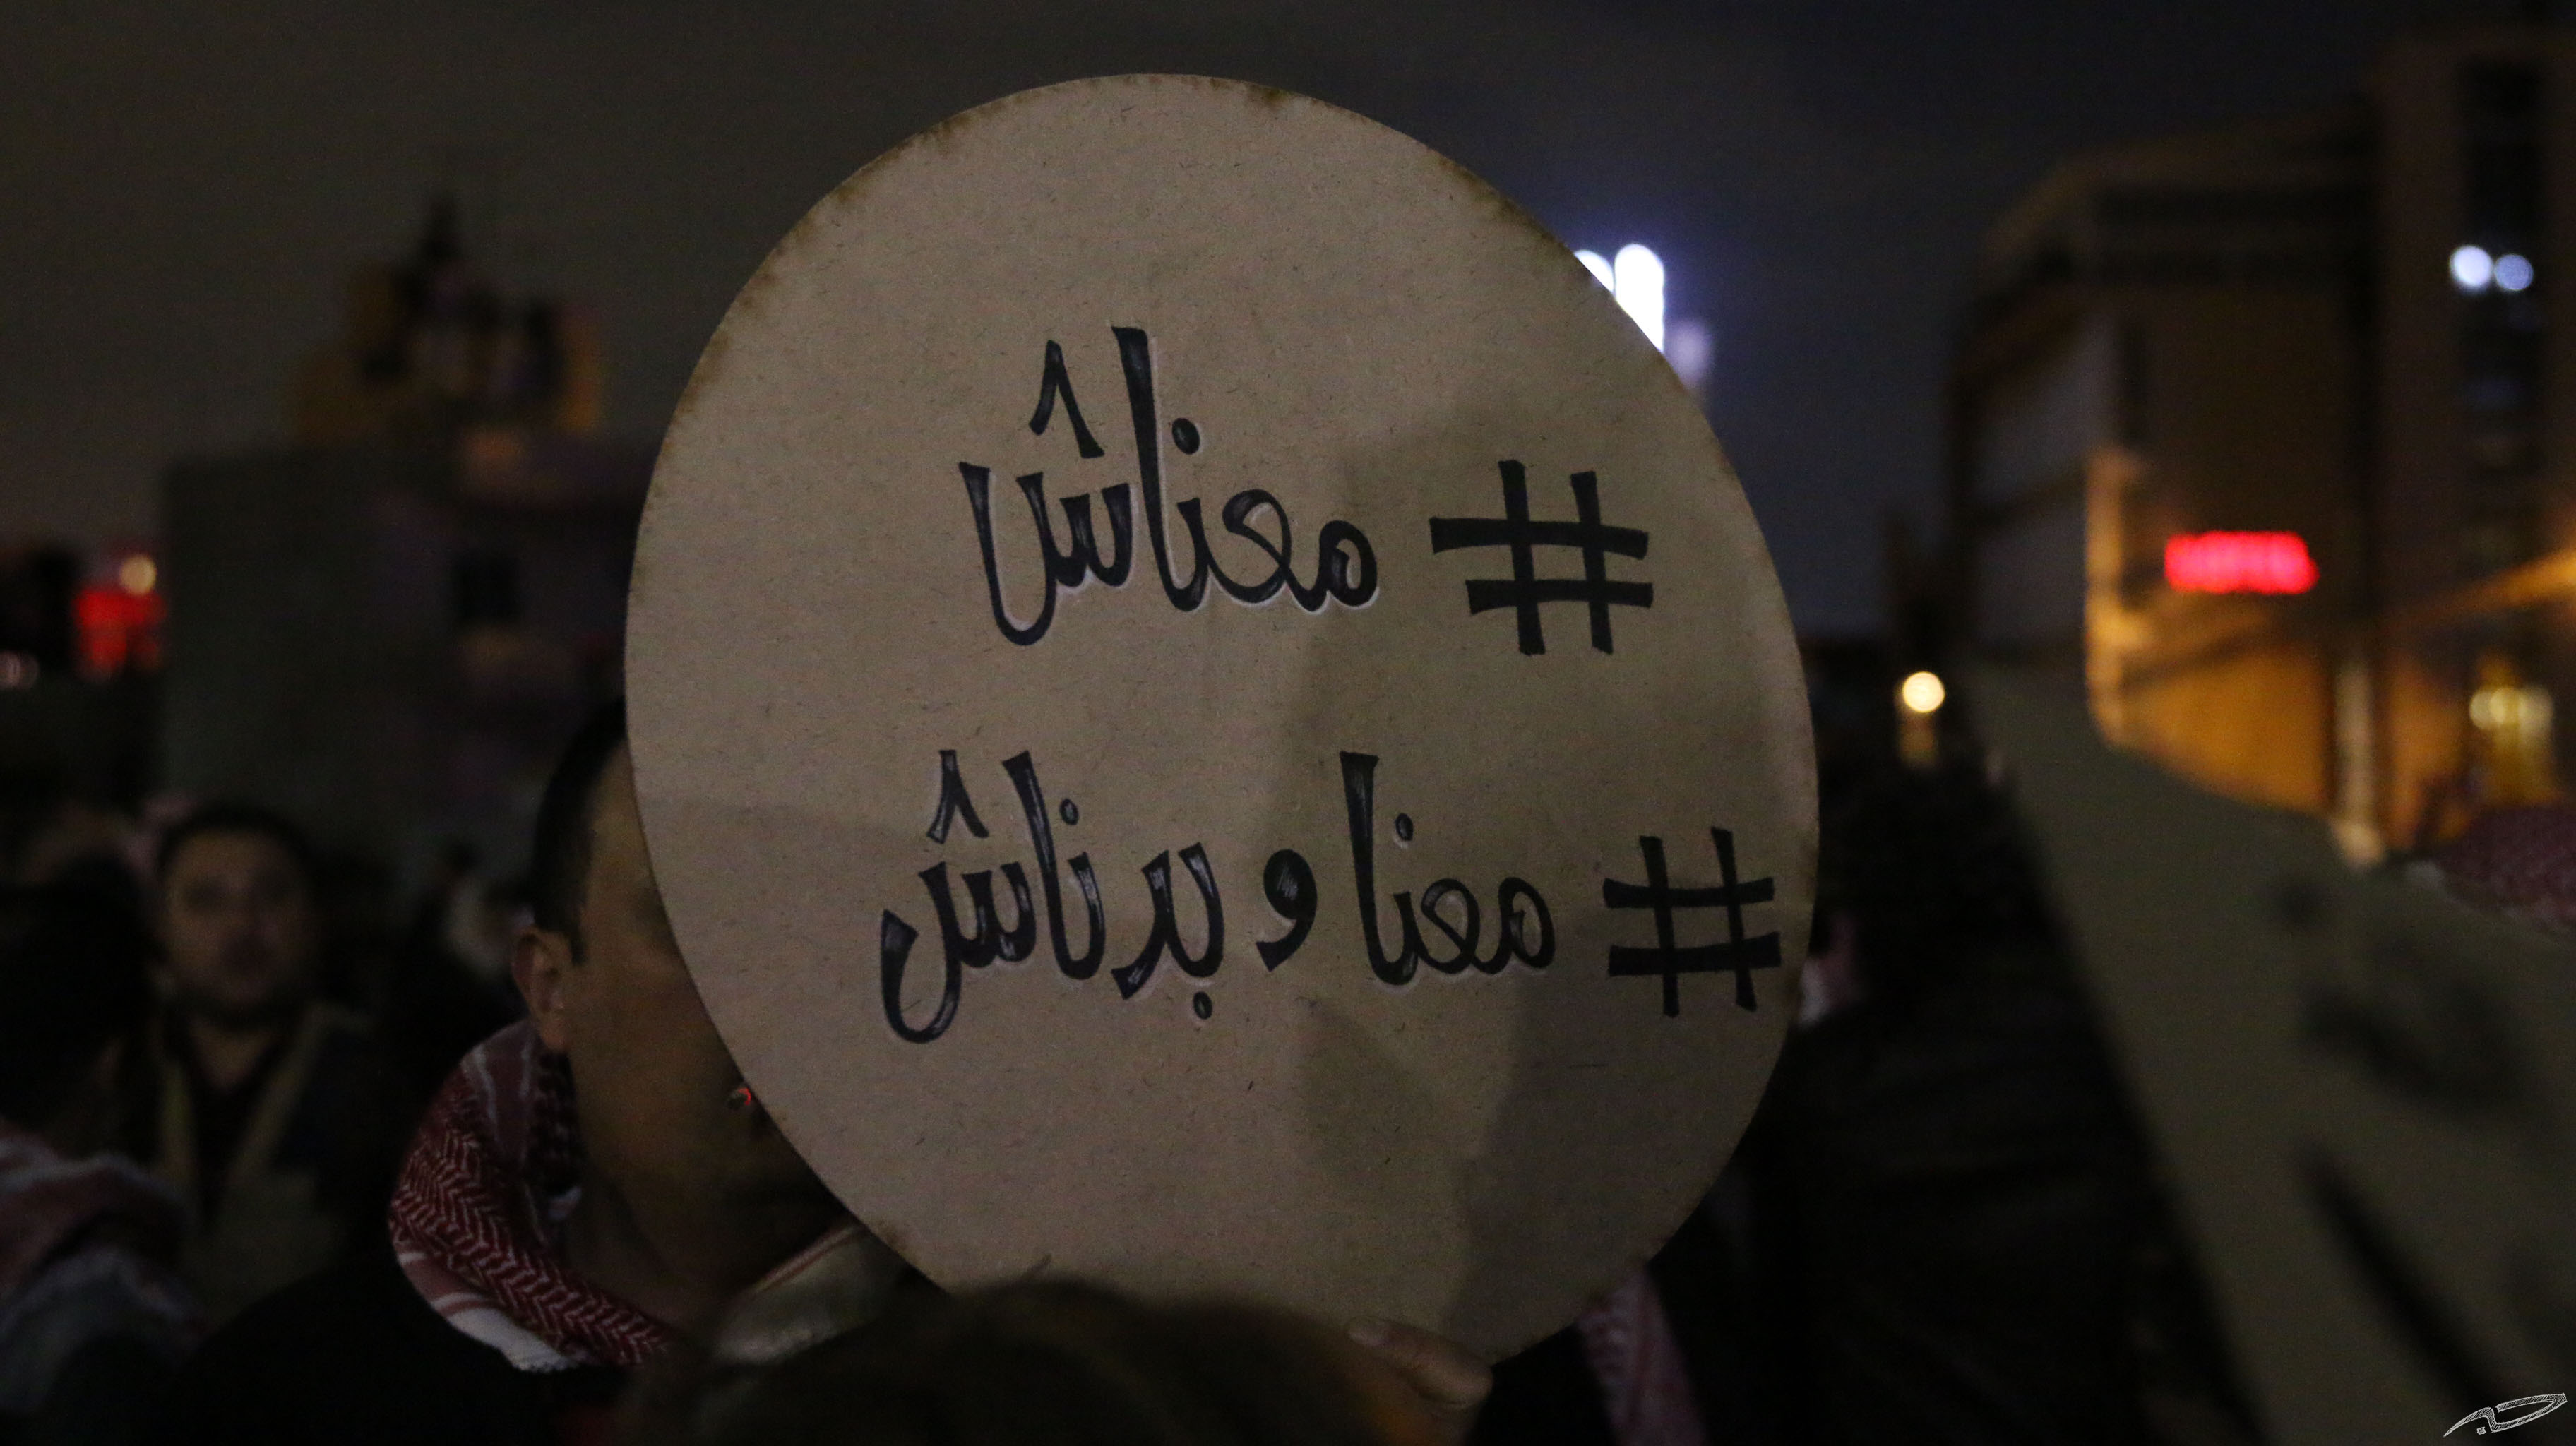 # معناش
# معنا و بدناش